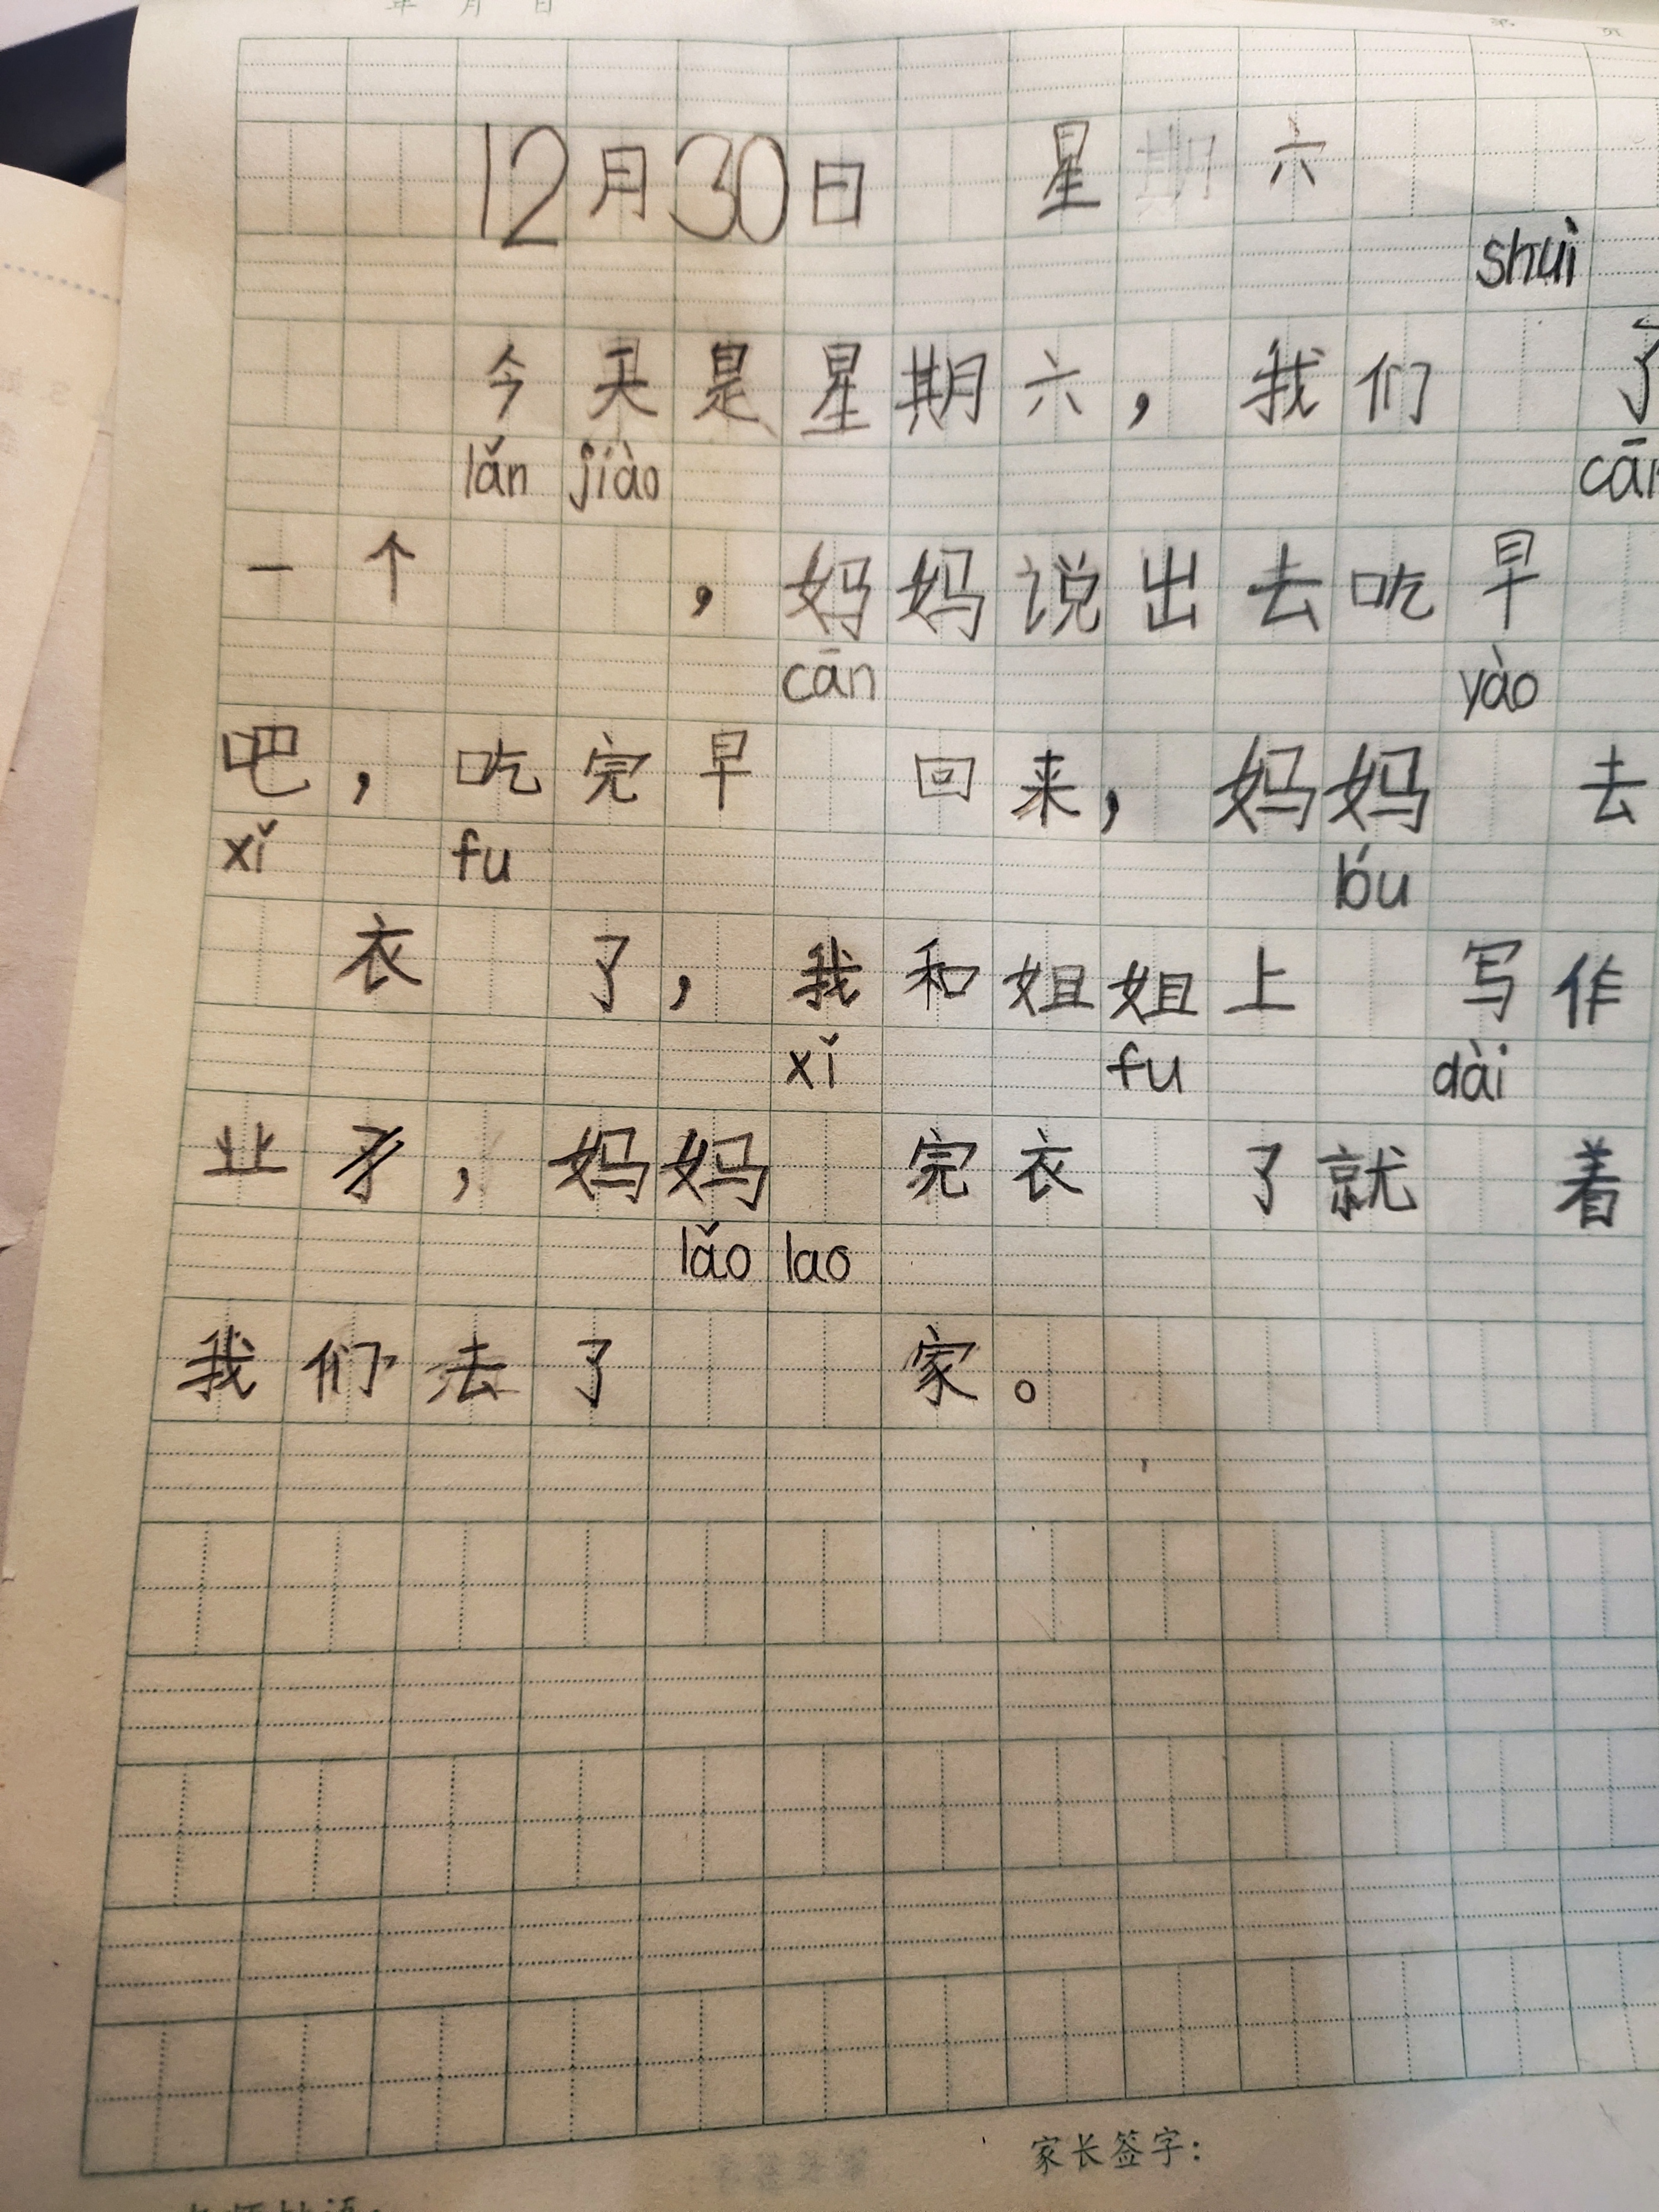 年 月 日
12月30日 星期六
shuì
今天是星期六，我们 了
lǎn jiào cān
一个 ，妈妈说出去吃早
cān yào
吧，吃完早 回来，妈妈 去
xǐ fu bú
衣 了，我和姐姐上 写作
xǐ fu dài
业，妈妈 完衣 了就 着
lǎo lao
我们去了 家。
家长签字：